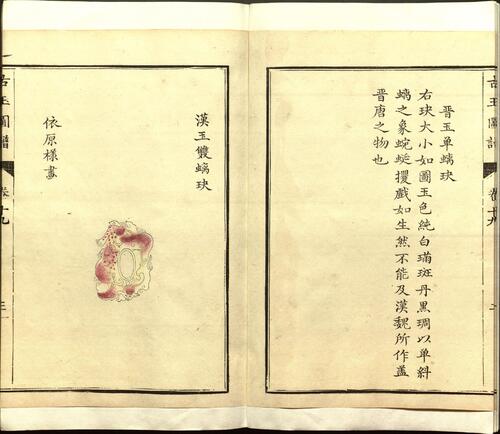 晉玉單螭玦
右玦大小如圖玉色純白璊斑丹黑琱以單斜
螭之象蜿蜒攫戲如生然不能及漢魏所作蓋
晉唐之物也
古玉圖譜
卷十九
漢玉雙螭玦
依原樣畫
古玉圖譜
卷十九